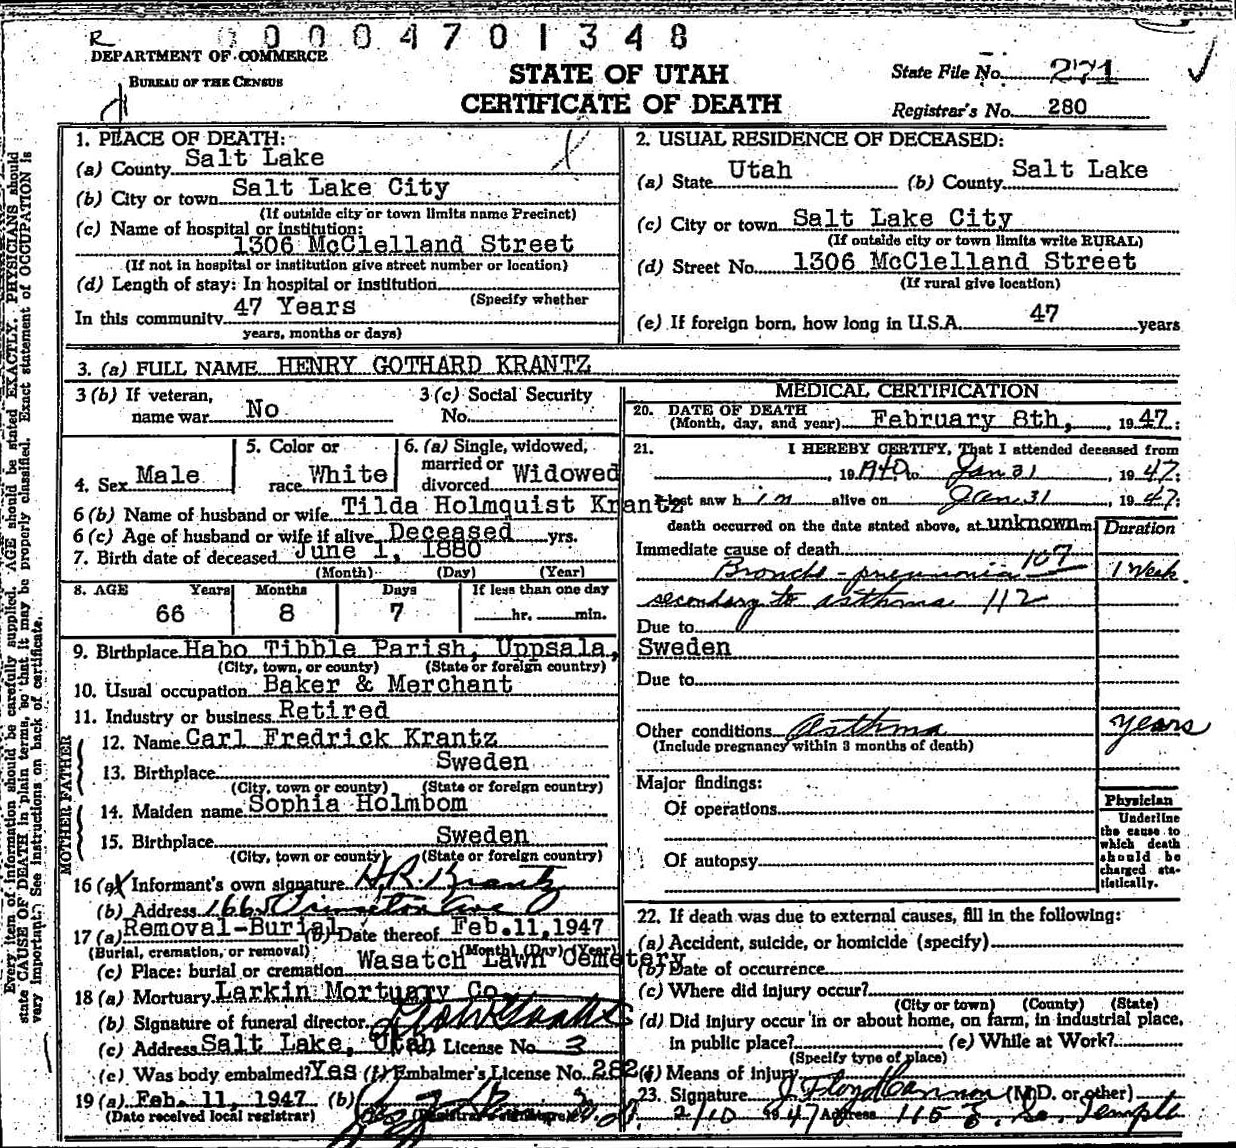 R 00004701348
DEPARTMENT OF COMMERCE
BUREAU OF THE CENSUS
STATE OF UTAH
CERTIFICATE OF DEATH
State File No. 271
Registrar's No. 280
Every item of information should be carefully supplied. AGE should be stated EXACTLY. PHYSICIANS should
state CAUSE OF DEATH in plain terms, so that it may be properly classified. Exact statement of OCCUPATION is
very important. See instructions on back of certificate.
1. PLACE OF DEATH:
(a) County Salt Lake
(b) City or town Salt Lake City
(If outside city or town limits name Precinct)
(c) Name of hospital or institution:
1306 McClelland Street
(If not in hospital or institution give street number or location)
(d) Length of stay: In hospital or institution
(Specify whether
In this community 47 Years
years, months or days)
2. USUAL RESIDENCE OF DECEASED:
(a) State Utah (b) County Salt Lake
(c) City or town Salt Lake City
(If outside city or town limits write RURAL)
(d) Street No. 1306 McClelland Street
(If rural give location)
(e) If foreign born, how long in U.S.A. 47 years
3. (a) FULL NAME HENRY GOTHARD KRANTZ
3 (b) If veteran, name war No
3 (c) Social Security No.
4. Sex Male
5. Color or race White
6. (a) Single, widowed, married or divorced Widowed
6 (b) Name of husband or wife Tilda Holmquist Krantz
6 (c) Age of husband or wife if alive Deceased yrs.
7. Birth date of deceased June 1, 1880
(Month) (Day) (Year)
8. AGE Years Months Days If less than one day
66 8 7 hr. min.
9. Birthplace Habo Tibble Parish, Uppsala,
(City, town, or county) (State or foreign country)
10. Usual occupation Baker & Merchant
11. Industry or business Retired
FATHER
12. Name Carl Fredrick Krantz
13. Birthplace Sweden
(City, town or county) (State or foreign country)
MOTHER
14. Maiden name Sophia Holmbom
15. Birthplace Sweden
(City, town or county) (State or foreign country)
16 (a) Informant's own signature H.R. Krantz
(b) Address 1665 Princeton Ave
17 (a) Removal-Burial (b) Date thereof Feb. 11, 1947
(Burial, cremation, or removal) (Month) (Day) (Year)
(c) Place: burial or cremation Wasatch Lawn Cemetery
18 (a) Mortuary Larkin Mortuary Co
(b) Signature of funeral director
(c) Address Salt Lake, Utah License No. 3
(e) Was body embalmed? Yes (f) Embalmer's License No. 282
19 (a) Feb. 11, 1947 (b)
(Date received local registrar) (Registrar's signature)
MEDICAL CERTIFICATION
20. DATE OF DEATH
(Month, day, and year) February 8th, 1947:
21. I HEREBY CERTIFY, That I attended deceased from
, 19 1940 to Jan 31, 1947:
I last saw him alive on Jan. 31 1947:
death occurred on the date stated above, at unknown m.
Duration
Immediate cause of death 107
Broncho-pneumonia 1 Week.
secondary to asthma 112
Due to
Sweden
Due to
Other conditions Asthma years
(Include pregnancy within 3 months of death)
Major findings:
Of operations
Of autopsy
Physician
Underline
the cause to
which death
should be
charged sta-
tistically.
22. If death was due to external causes, fill in the following:
(a) Accident, suicide, or homicide (specify)
(b) Date of occurrence
(c) Where did injury occur?
(City or town) (County) (State)
(d) Did injury occur in or about home, on farm, in industrial place,
in public place? (e) While at Work?
(Specify type of place)
(f) Means of injury
23. Signature J. Floyd Cannon (M.D. or other)
2/10 1947 Address 115 E. So. Temple